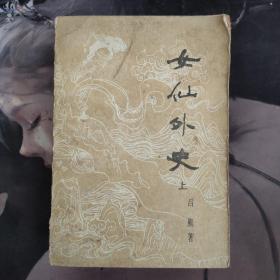 女仙外史
上
吕熊著